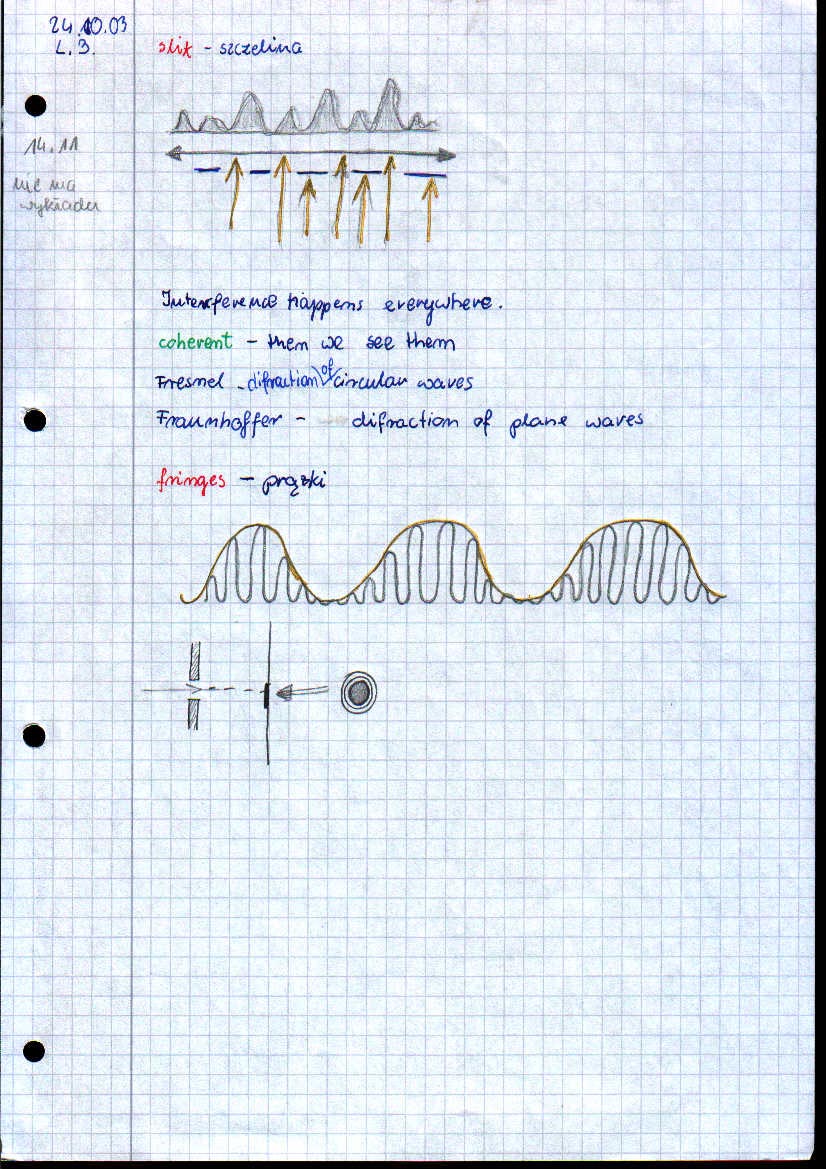 24.10.03
L. 3.
slit - szczelina
14.11
nie ma
wykładu
Interference happens everywhere.
coherent - then we see them
Fresnel - difraction of circular waves
Fraunhoffer - difraction of plane waves
fringes - prążki